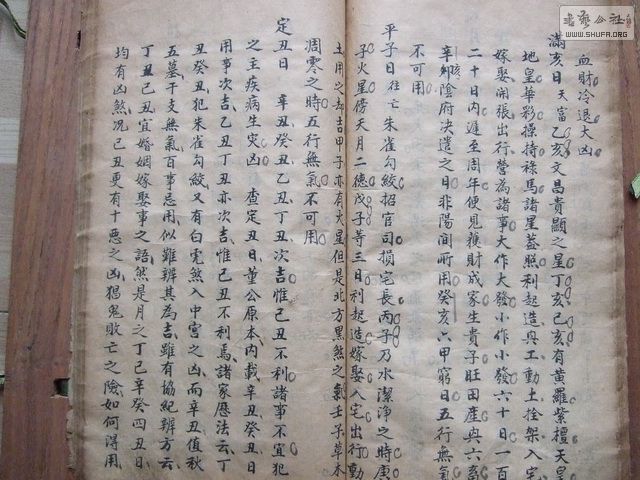 血財冷退大凶
滿亥日 天富乙亥文昌貴顯之星丁亥己亥有黃羅紫檀天皇
地皇華彩操持祿馬諸星蓋照利起造興工動土拴架入宅
嫁娶開張出行營為諸事大作大發小作小發六十日一百
二十日內遲至周年便見獲財成家生貴子旺田產與六畜
辛亥陰府決遣之日非陽間所用癸亥六甲窮日五行無氣
不可用
平子日 往亡 朱雀勾絞招官司損宅長丙子乃水潔淨之時庚
子火星傍天月二德戊子等三日利起造嫁娶入宅出行動
土用之却吉甲子亦有火星但是北方黑煞之氣壬子草木
凋零之時五行無氣不可用
定丑日 辛丑癸丑乙丑丁丑次吉惟己丑不利諸事不宜犯
之主疾病生災凶 查定丑日董公原本內載辛丑癸丑日
用事次吉乙丑丁丑亦次吉惟己丑不利焉諸家歷法云丁
丑癸丑犯朱雀勾絞又有白虎煞入中宮之凶而辛丑值秋
五墓干支無氣百事忌用似難辨其為吉雖有協紀辨方云
丁丑己丑宜婚姻嫁娶事之語然是月之丁己辛癸四丑日
均有凶煞况己丑更有十惡之凶猖鬼敗亡之險如何得用
书艺公社
WWW.SHUFA.ORG